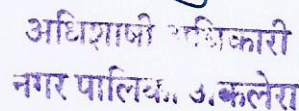 अधिशाषी अधिकारी
नगर पालिका अकलेरा